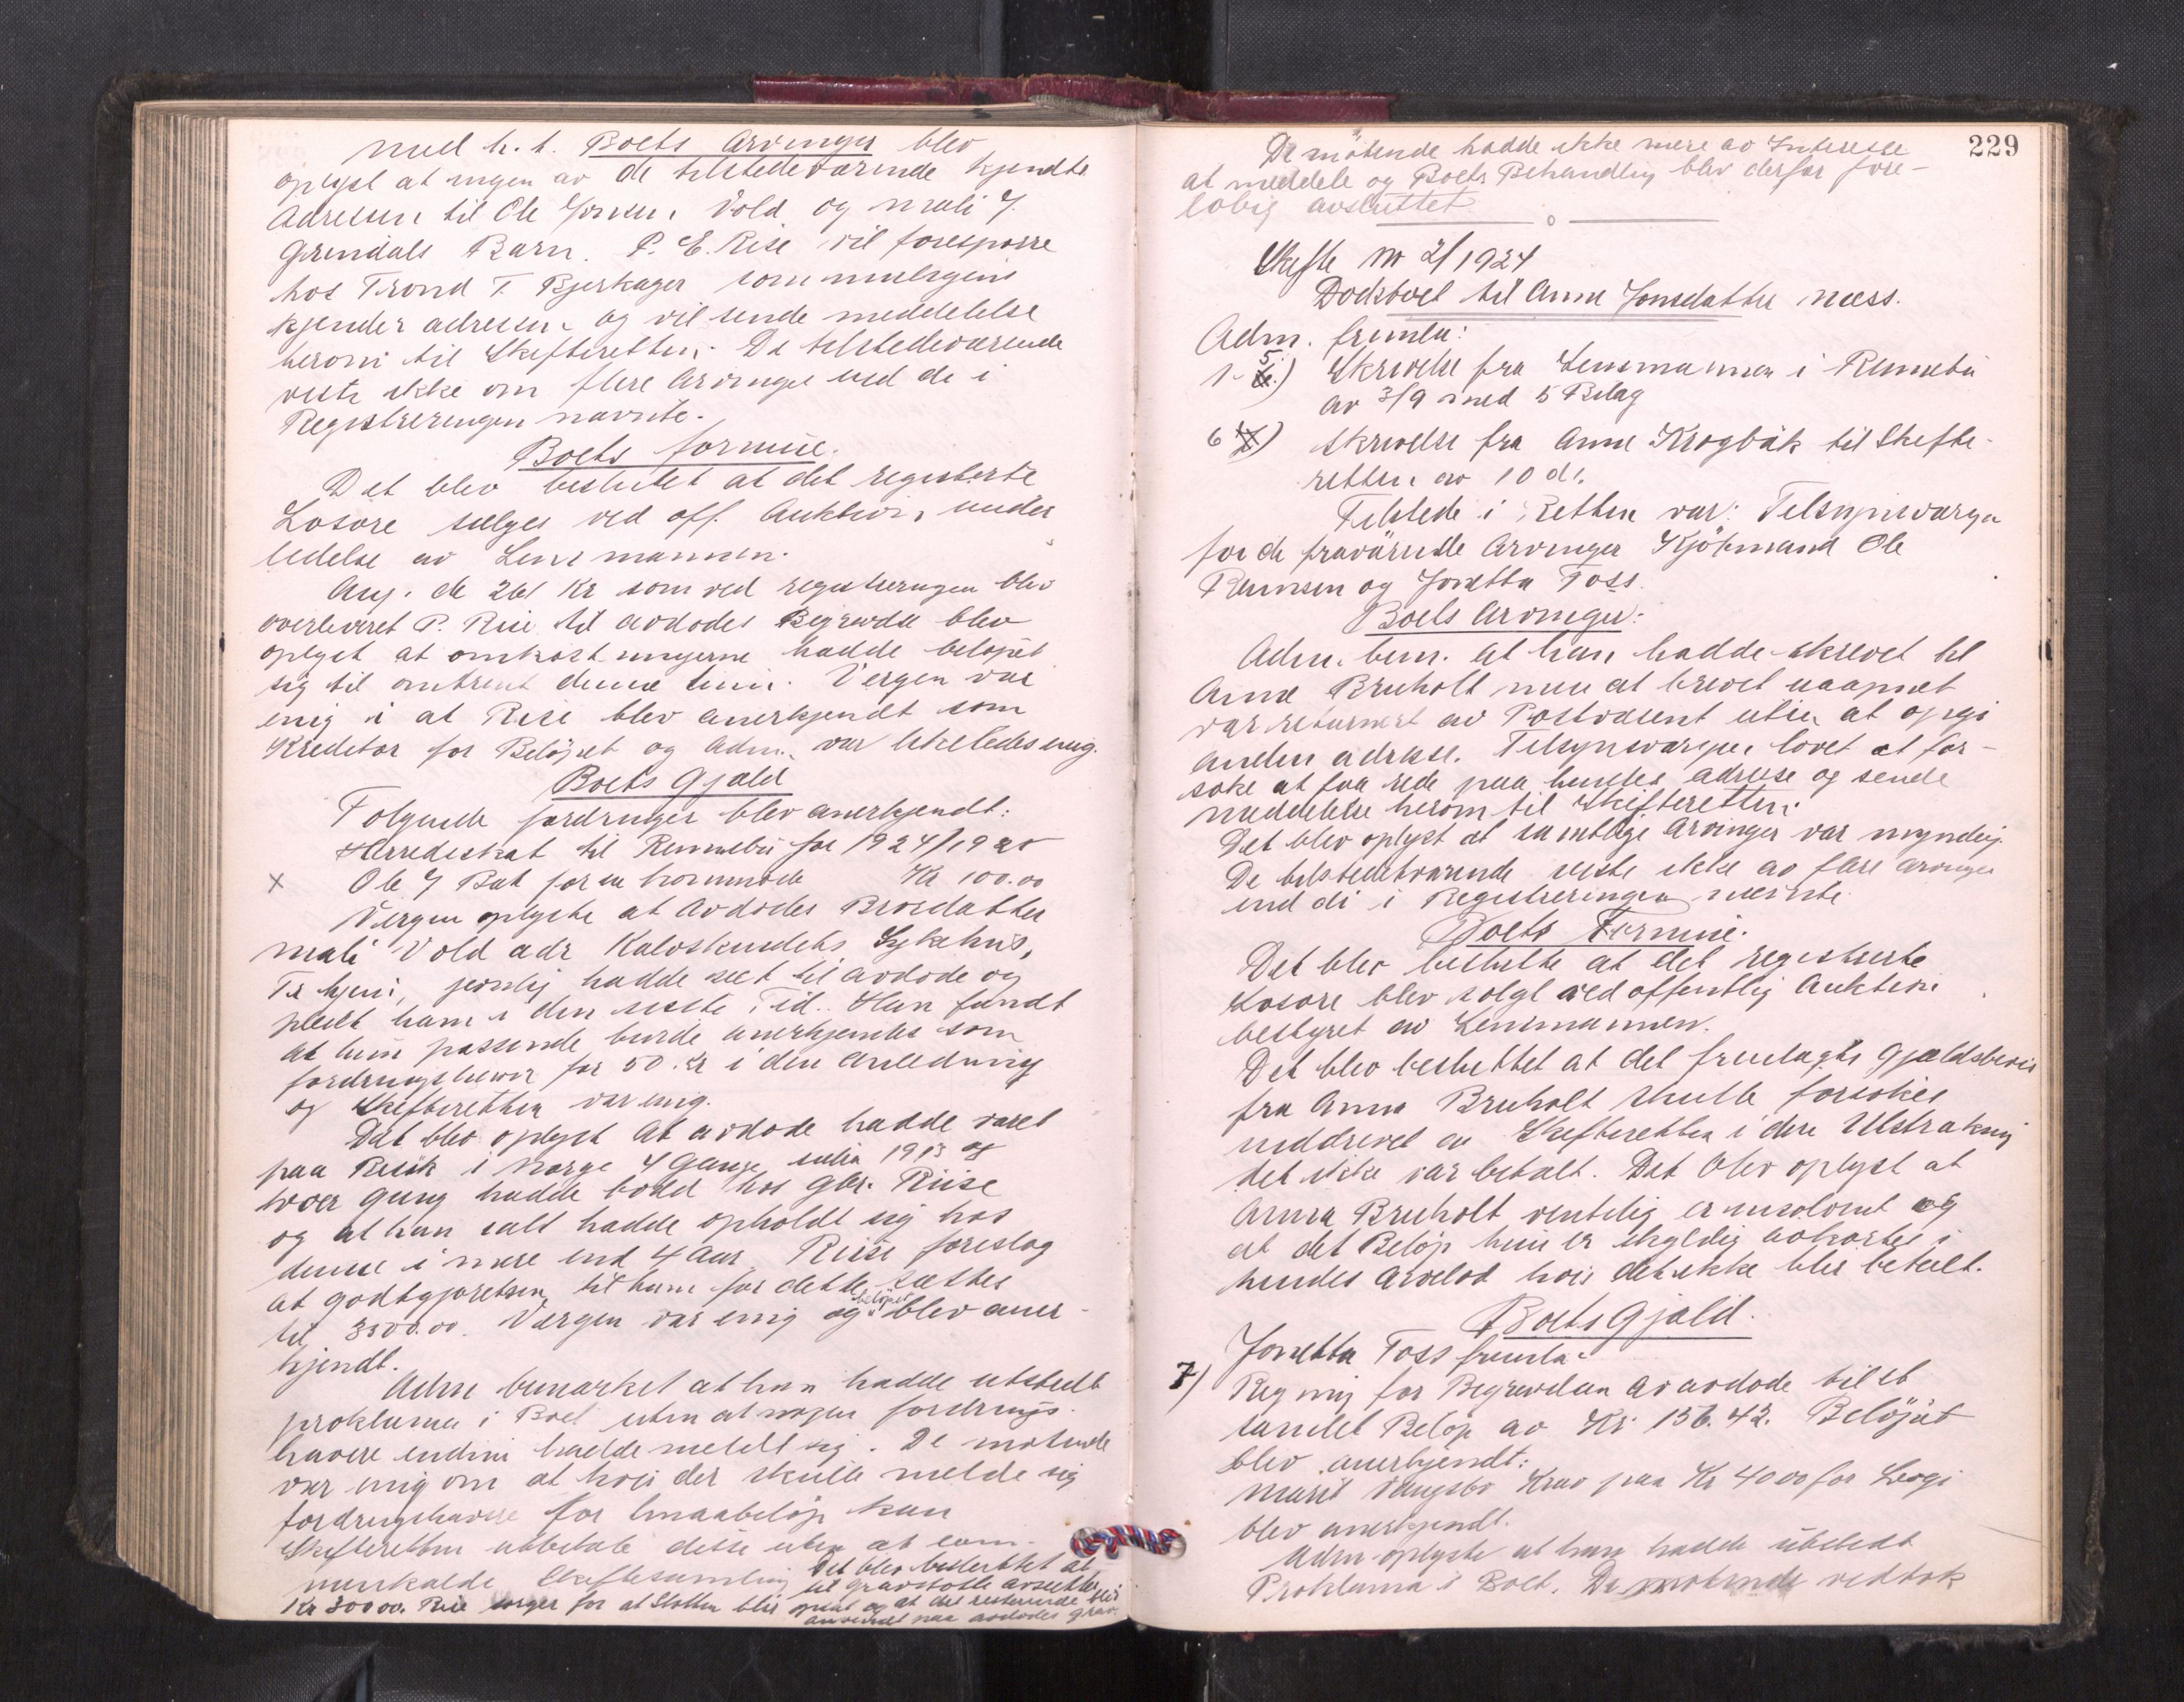 med h. t. Boets Arvinger blev
oplyst at ingen av de tilstedeværende kjendte
Adressen til Ole Jonsen Vold og Mali J.
Grindals Barn. P. E. Rise vil forespørre
hos Trond T. Bjerkager som muligens
kjender adressen og vil sende meddelelse
herom til Skifteretten. De tilstedeværende
viste ikke om flere Arvinger end de i
Registreringen nævnte.
Boets formue.
Det blev besluttet at det registerte
Løsøre sælges ved off. Auktion under
ledelse av Lensmannen.
Ang. de 261 Kr som ved registreringen blev
overleveret P. Rise til avdødes Begravelse blev
oplyst at omkostningerne hadde beløpet
sig til omtrent denne sum. Vergen var
enig i at Rise blev anerkjendt som
Kreditor for Beløpet og Adm. var likeledes enig.
Boets Gjæld
Følgende fordringer blev anerkjendt:
Herredsskat til Rennebu for 1924/1925
x Ole J Bak for en Kommode Kr 100.00
Vergen oplyste at Avdødes Brordatter
Mali Vold adr Kalvskindets Sykehus,
Tr hjem, jevnlig hadde seet til avdøde og
pleiet ham i den siste Tid. Han fandt
at hun passende burde anerkjendes som
fordringshaver for 50 Kr i den Anledning
og Skifteretten var enig.
Det blev oplyst at avdøde hadde været
paa Besøk i Norge 4 Gange siden 1913 og
hver gang hadde bodd hos Gbr. Riise
og at han ialt hadde opholdt sig hos
denne i mere end 4 Aar. Riise foreslog
at godtgjørelsen til ham for dette sættes
til 3500.00. Vergen var enig og beløpet blev aner-
kjendt.
Adm bemærket at han hadde utstedt
proklama i Boet uten at nogen fordrings-
havere endnu hadde meldt sig. De møtende
var enig om at hvis der skulle melde sig
fordringshavere for smaabeløp kan
Skifteretten utbetale disse uten at sam-
menkalde Skiftesamling. Det blev besluttet at
til gravstøtte avsættes
Kr 300.00. Rise sørger for at Støtten blir opsat og at det resterende blir
anvendt paa avdødes grav.
229
De møtende hadde ikke mere av Interesse
at meddele og Boets Behandling blev derfor fore-
løbig avsluttet
Skifte nr 2/1924
Dødsboet til Anne Jonsdatter Næss.
Adm. fremla:
1-5.) Skrivelse fra Lensmannen i Rennebu
av 3/9 med 5 Bilag
6) Skrivelse fra Anne Krogbæk til Skifte-
retten av 10 ds.
Tilstede i Retten var: Tilsynsvergen
for de fraværende Arvinger Kjøbmand Ole
Ramsen og Jonetta Foss.
Boets Arvinger:
Adm. bem. at han hadde skrevet til
Anne Bruholt men at brevet uaapnet
var returnert av Postvæsent uten at opgi
anden adresse. Tilsynsvergen lovet at for-
søke at faa rede paa hendes adresse og sende
meddelelse herom til Skifteretten.
Det blev oplyst at samtlige Arvinger var myndig.
De tilstedeværende viste ikke av flere arvinger
end de i Registreringen nævnte.
Boets Formue.
Det blev besluttet at det registrerte
Løsøre blev solgt ved offentlig Auktion
bestyret av Lensmannen.
Det blev besluttet at det fremlagte Gjældsbevis
fra Anna Bruholt skulle forsøkes
inddrevet av Skifteretten i den Utstrækning
det ikke var betalt. Det blev oplyst at
Anna Bruholt ventelig er insolvent og
at det Beløp hun er skyldig avkortes i
hendes Arvelod hvis det ikke blir betalt.
Boets Gjæld.
Jonetta Foss fremla:
7) Regning for Begravelsen av avdøde til et
samlet Beløp av Kr. 156.42. Beløpet
blev anerkjendt.
Marit Vangsbo Krav paa Kr 40 00 for Losji
blev anerkjendt.
Adm oplyste at han hadde utstedt
Proklama i Boet. De møtende vedtok